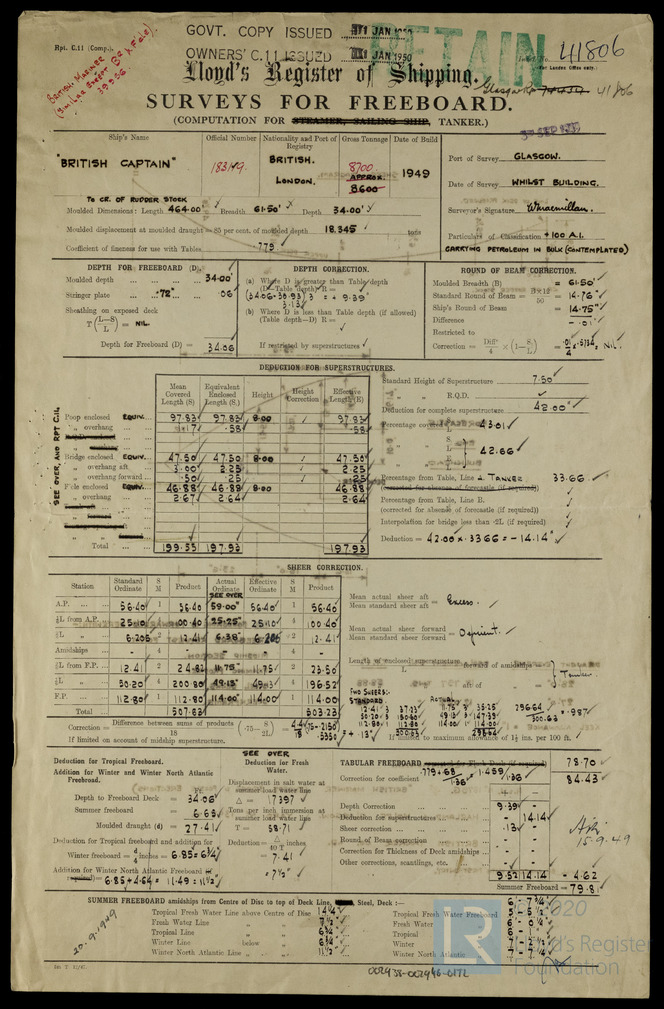 Rpt. C.11 (Comp.).
GOVT. COPY ISSUED JAN 1950
OWNERS' C.11 ISSUED JAN 1950
RETAIN
41806
(For London Office only.)
BRITISH MARINER
39956
Lloyd's Register of Shipping.
Glasgow Rpt 74434 41806
SURVEYS FOR FREEBOARD.
(COMPUTATION FOR STEAMER, SAILING SHIP, TANKER.)
Ship's Name
Official Number
Nationality and Port of Registry
Gross Tonnage
Date of Build
"BRITISH CAPTAIN"
183149.
BRITISH.
LONDON.
8700
APPROX.
8600
1949
Port of Survey GLASGOW.
Date of Survey WHILST BUILDING.
Surveyor's Signature
Particulars of Classification +100 A.I.
CARRYING PETROLEUM IN BULK (CONTEMPLATED)
TO CR. OF RUDDER STOCK
Moulded Dimensions: Length 464.00' Breadth 61.50' Depth 34.00'
Moulded displacement at moulded draught = 85 per cent. of moulded depth 18.345 tons
Coefficient of fineness for use with Tables .779
DEPTH FOR FREEBOARD (D).
Moulded depth ... ... ... 34.00'
Stringer plate ... .72" ... 06
Sheathing on exposed deck
T(L-S/L) = NIL.
Depth for Freeboard (D) = 34.06
DEPTH CORRECTION.
(a) Where D is greater than Table depth
(D-Table depth) R =
(34.06-30.93) 3 = + 9.39"
3.13
(b) Where D is less than Table depth (if allowed)
(Table depth-D) R =
If restricted by superstructures
ROUND OF BEAM CORRECTION.
Moulded Breadth (B) = 61.50'
Standard Round of Beam = B×12/50 = 14.76"
Ship's Round of Beam = 14.75"
Difference -.01
Restricted to
Correction = Diff/4 × (1-S/L) = .01/4 × .5734 = NIL.
DEDUCTION FOR SUPERSTRUCTURES.
SEE OVER, AND RPT C.11.
Mean Covered Length (S)
Equivalent Enclosed Length (S.)
Height
Height Correction
Effective Length (E)
Poop enclosed EQUIV. 97.83 97.83 8.00 97.83
" overhang 1.17 .58 .58
Bridge enclosed EQUIV. 47.50 47.50 8.00 47.50
" overhang aft 3.00 2.25 2.25
" overhang forward .50 .25 .25
F'cle enclosed EQUIV. 46.88 46.88 8.00 46.88
" overhang 2.67 2.64 2.64
Total ... 199.55 197.93 197.93
Standard Height of Superstructure 7.50
" " R.Q.D.
Deduction for complete superstructure 42.00"
Percentage covered S/L = 43.01
42.66
Percentage from Table, Line A. TANKER 33.66
(corrected for absence of forecastle (if required))
Percentage from Table, Line B.
(corrected for absence of forecastle (if required))
Interpolation for bridge less than .2L (if required)
Deduction = 42.00 × .3366 = - 14.14"
SHEER CORRECTION.
Station
Standard Ordinate
S M
Product
Actual Ordinate
SEE OVER
Effective Ordinate
S M
Product
A.P. ... 56.40 1 56.40 59.00" 56.40 1 56.40
⅙L from A.P. 25.10 4 100.40 25.25" 25.10 4 100.40
⅓L " 6.205 2 12.41 6.38" 6.205 2 12.41
Amidships ... - 4 - - 4 -
⅓L from F.P. 12.41 2 24.82 11.75" 11.75 2 23.50
⅙L " 50.20 4 200.80 49.13" 49.13 4 196.52
F.P. 112.80 1 112.80 114.00" 114.00 1 114.00
Total 507.63 503.23
Mean actual sheer aft
Mean standard sheer aft = Excess.
Mean actual sheer forward
Mean standard sheer forward = Deficient.
Length of enclosed superstructure forward of amidships
" " aft of "
= Tanker.
Correction = Difference between sums of products/18 (.75 - S/2L)
If limited on account of midship superstructure.
If limited to maximum allowance of 1½ ins. per 100 ft.
Deduction for Tropical Freeboard.
Addition for Winter and Winter North Atlantic Freeboard.
Depth to Freeboard Deck = 34.06
Summer freeboard = 6.65
Moulded draught (d) = 27.41
Deduction for Tropical freeboard and addition for
Winter freeboard = d/4 inches = 6.85 = 6¾"
Addition for Winter North Atlantic Freeboard (if required) = 6.85 + 4.64 = 11.49 = 11½"
SEE OVER
Deduction for Fresh Water.
Displacement in salt water at summer load water line
Δ = 17397
Tons per inch immersion at summer load water line
T = 58.71
Deduction = Δ/40 T inches
= 7.41
= 7½"
TABULAR FREEBOARD 73.70
Correction for coefficient .779+.68/1.36 = 1.459/1.36 84.43
Depth Correction 9.39 -
Deduction for superstructures - 14.14
Sheer correction .13 -
Round of Beam correction - -
Correction for Thickness of Deck amidships - -
Other corrections, scantlings, etc. - -
9.52 14.14 - 4.62
Summer Freeboard = 79.81
15.9.49
SUMMER FREEBOARD amidships from Centre of Disc to top of Deck Line, Steel, Deck:-
Tropical Fresh Water Line above Centre of Disc 14¼"
Fresh Water Line " " 7½"
Tropical Line " " 6¾"
Winter Line below " 6¾"
Winter North Atlantic Line " " 11½"
6'- 7¾"
Tropical Fresh Water Freeboard 5'- 5½"
Fresh Water " 6'- 0¼"
Tropical " 6'- 1"
Winter " 7'- 2½"
Winter North Atlantic " 7'- 7¼"
20.9.1949
002438-002446-0172
LR
© 2020
Lloyd's Register
Foundation